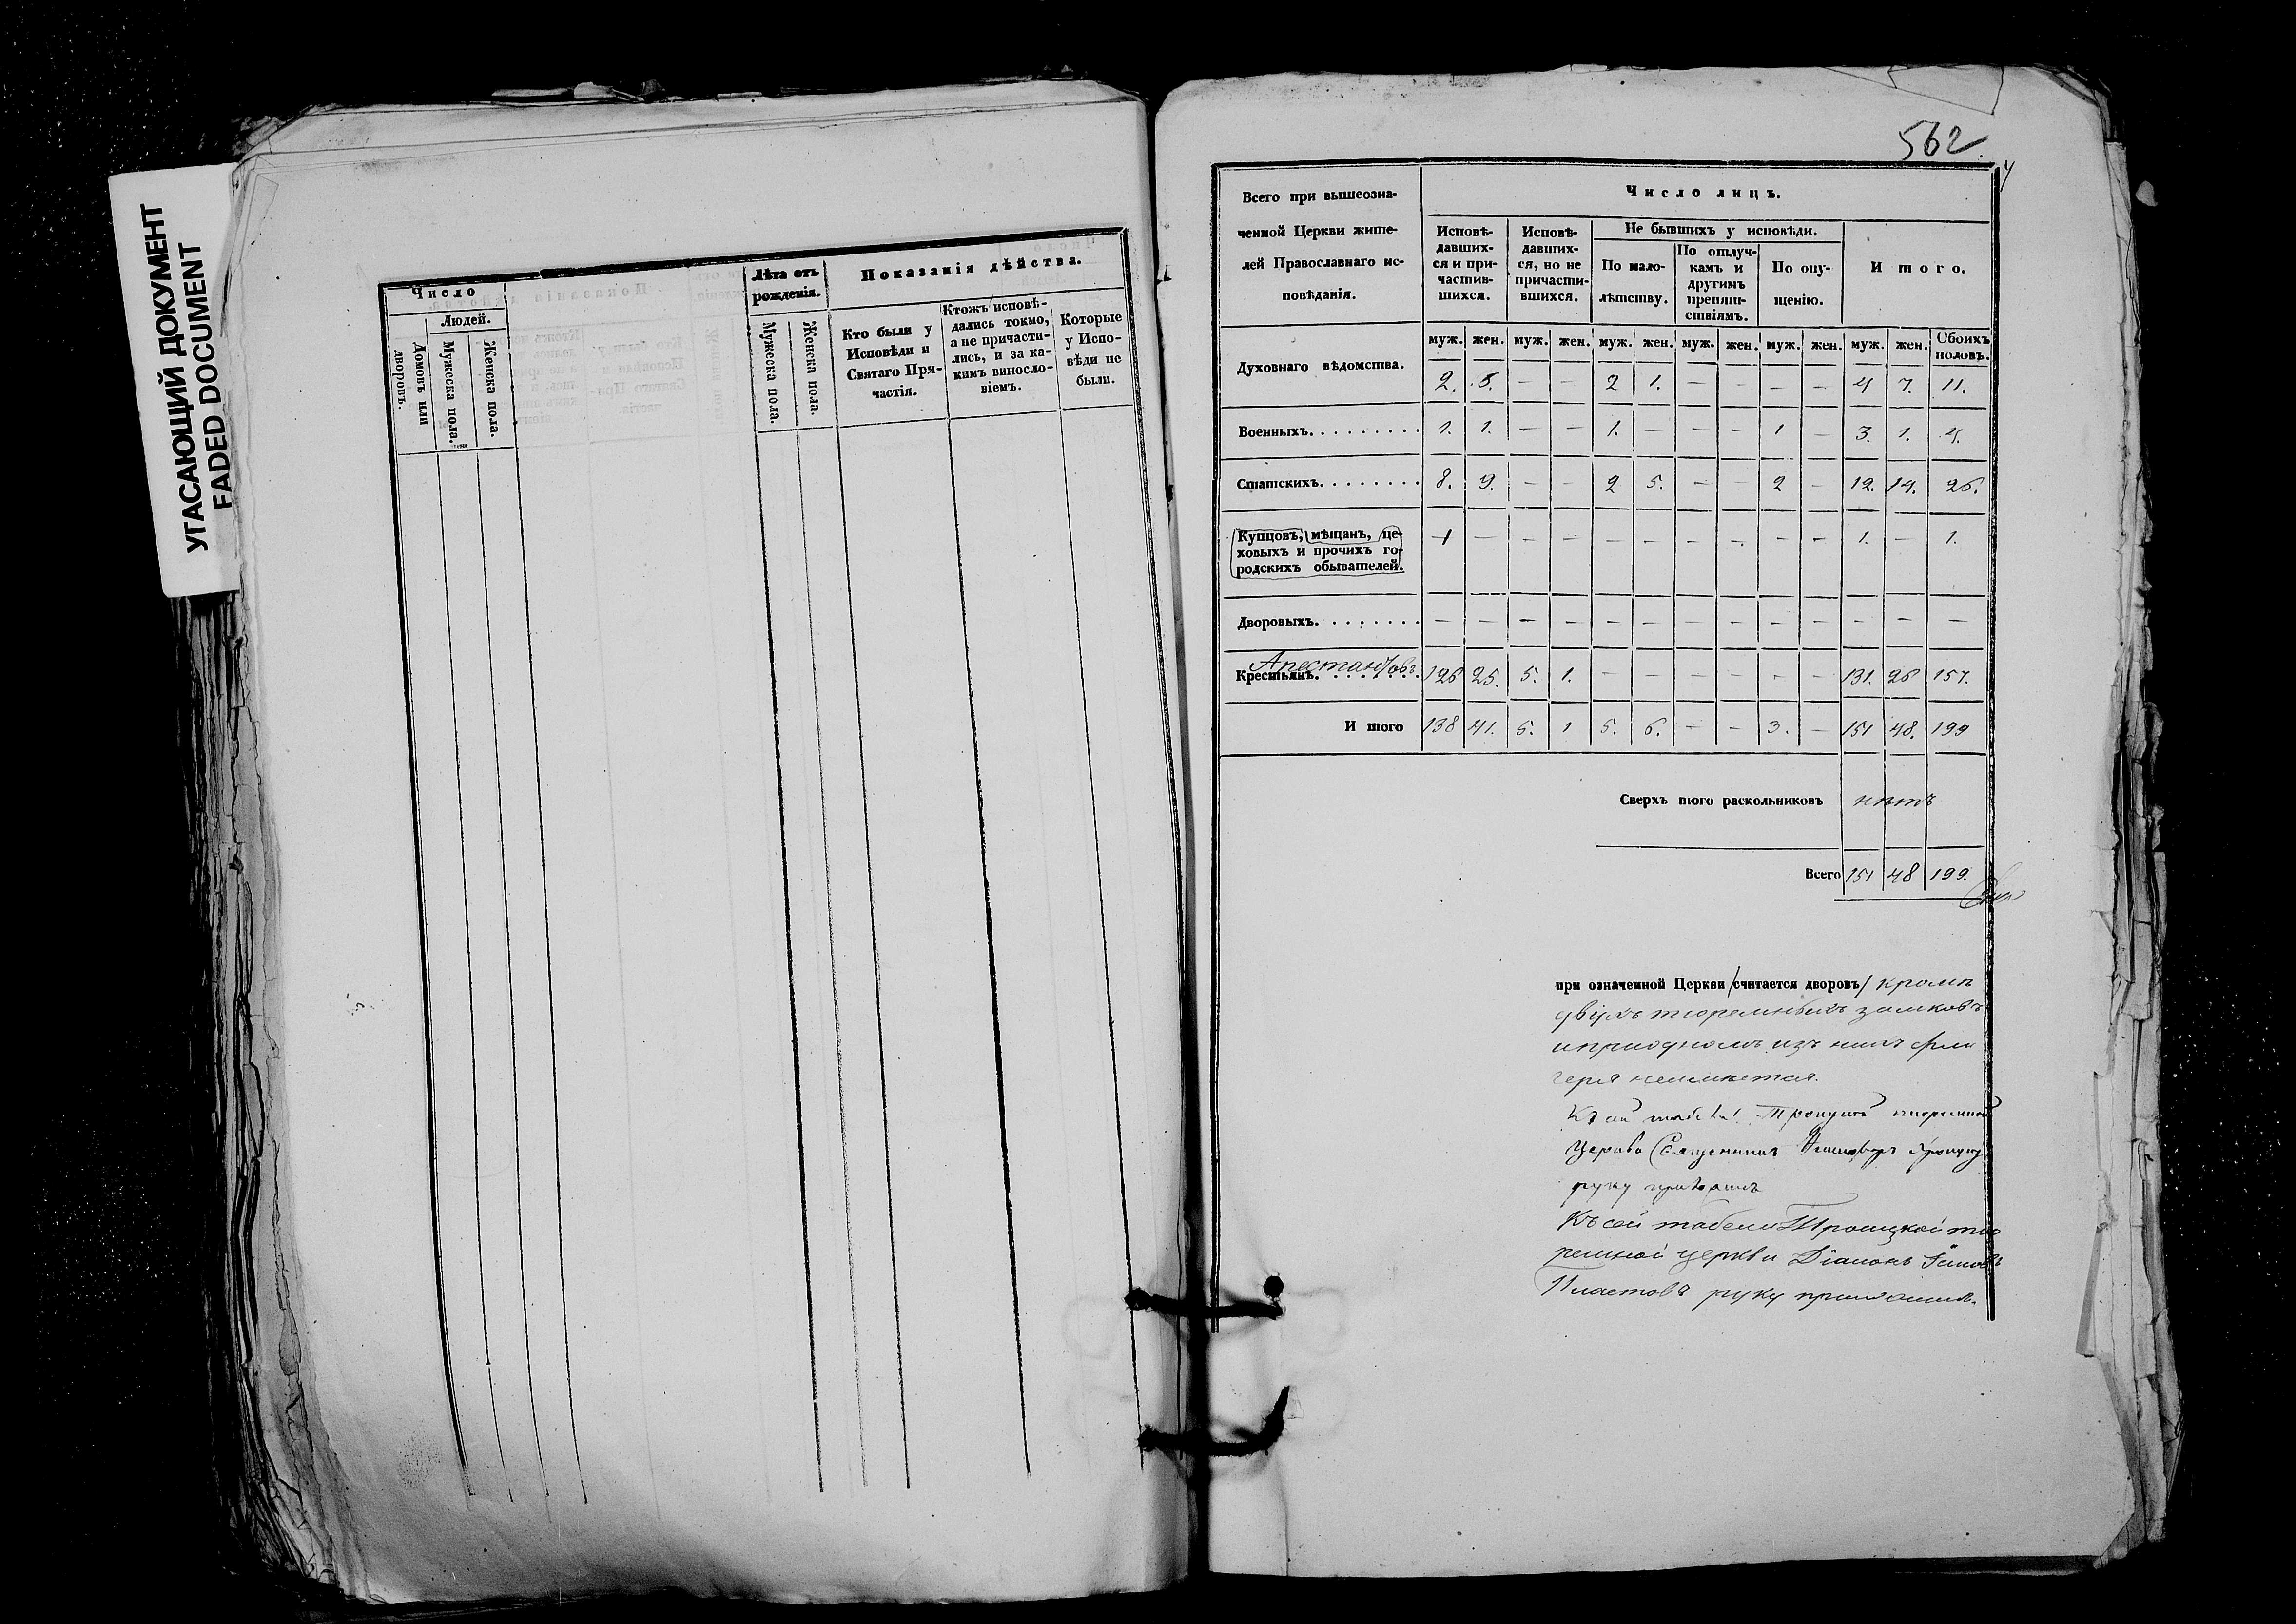 УГАСАЮЩИЙ ДОКУМЕНТ
FADED DOCUMENT
Число
Людей.
Домовъ или дворовъ.
Мужеска пола.
Женска пола.
Лѣта отъ рожденія.
Мужеска пола.
Женска пола.
Показанія дѣйства.
Кто были у
Исповѣди и
Святаго При-
частія.
Ктожъ исповѣ-
дались токмо,
а не причасти-
лись, и за ка-
кимъ винosло-
віемъ.
Которые
у Испо-
вѣди не
были.
562
Всего при вышеозна-
ченной Церкви жите-
лей Православнаго ис-
повѣданія.
Число лицъ.
Исповѣ-
давших-
ся и при-
частив-
шихся.
Исповѣ-
давших-
ся, но не
причасти-
вшихся.
Не бывшихъ у исповѣди.
По мало-
лѣтству.
По отлуч-
камъ и
другимъ
препят-
ствіямъ.
По опу-
щенію.
Итого.
муж. жен. муж. жен. муж. жен. муж. жен. муж. жен. муж. жен. Обоихъ половъ.
Духовнаго вѣдомства. 2. 6. — — 2 1. — — — — 4 7. 11.
Военныхъ. 1. 1. — — 1. — — — 1 — 3. 1. 4.
Статскихъ. 8. 9. — — 2 5. — — 2 — 12. 14. 26.
Купцовъ, мѣщанъ, це-
ховыхъ и прочихъ го-
родскихъ обывателей. 1 — — — — — — — — — 1. — 1.
Дворовыхъ. — — — — — — — — — — — — —
Арестантовъ
Крестьянъ. 126 25. 5. 1. — — — — — — 131. 26 157.
И того 138 41. 5. 1 5. 6. — — 3. — 151 48. 199
Сверхъ того раскольниковъ нѣтъ
Всего 151 48 199.
при означенной Церкви считается дворовъ кромѣ
двухъ тюремныхъ замковъ
и приодномъ изъ нихъ фли
геря неимѣется.
Къ сей табели Троицкой тюремной
Церкви Священникъ
руку приложилъ
Къ сей табели Троицкой тю
ремной церкви Діаконъ
Пластовъ руку приложилъ.